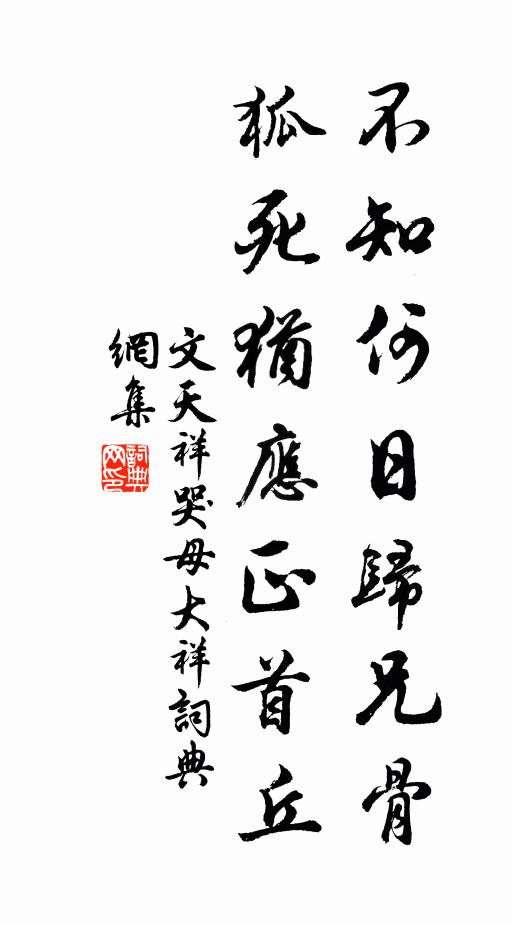 不知何日歸兄骨
狐死猶應正首丘
文天祥哭母大祥詞典
網集
詞典
网印